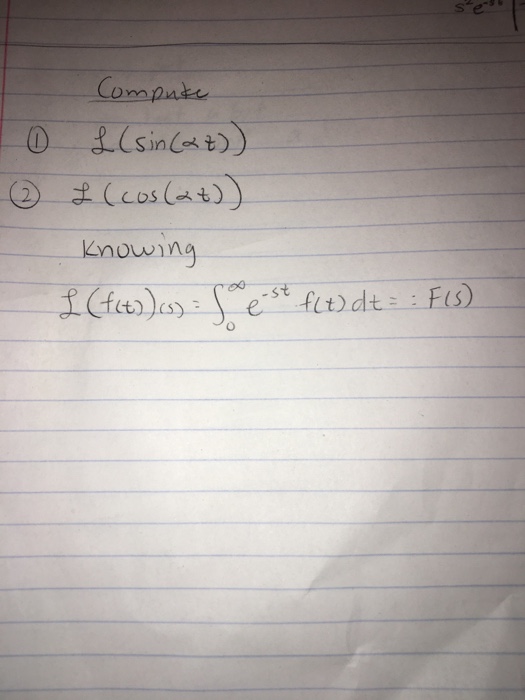 s²e
Compute
① ℒ(sin(αt))
② ℒ(cos(αt))
Knowing
ℒ(f(t))(s) = ∫₀^∞ e^-st f(t) dt = : F(s)